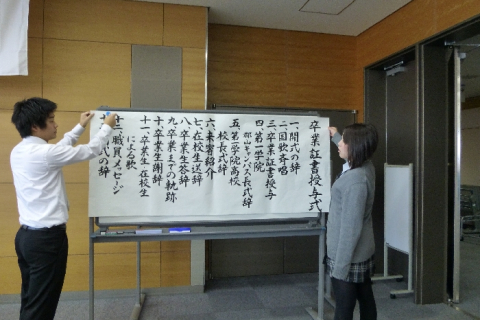 卒業証書授与式
一、開式の辞
二、国歌斉唱
三、卒業証書授与
四、第一学院
郡山キャンパス長式辞
五、第一学院高校
校長式辞
六、来賓紹介
七、在校生送辞
八、卒業生答辞
九、卒業までの軌跡
十、卒業生謝辞
十一、卒業生 在校生
による歌
十二、職員メッセージ
式の辞